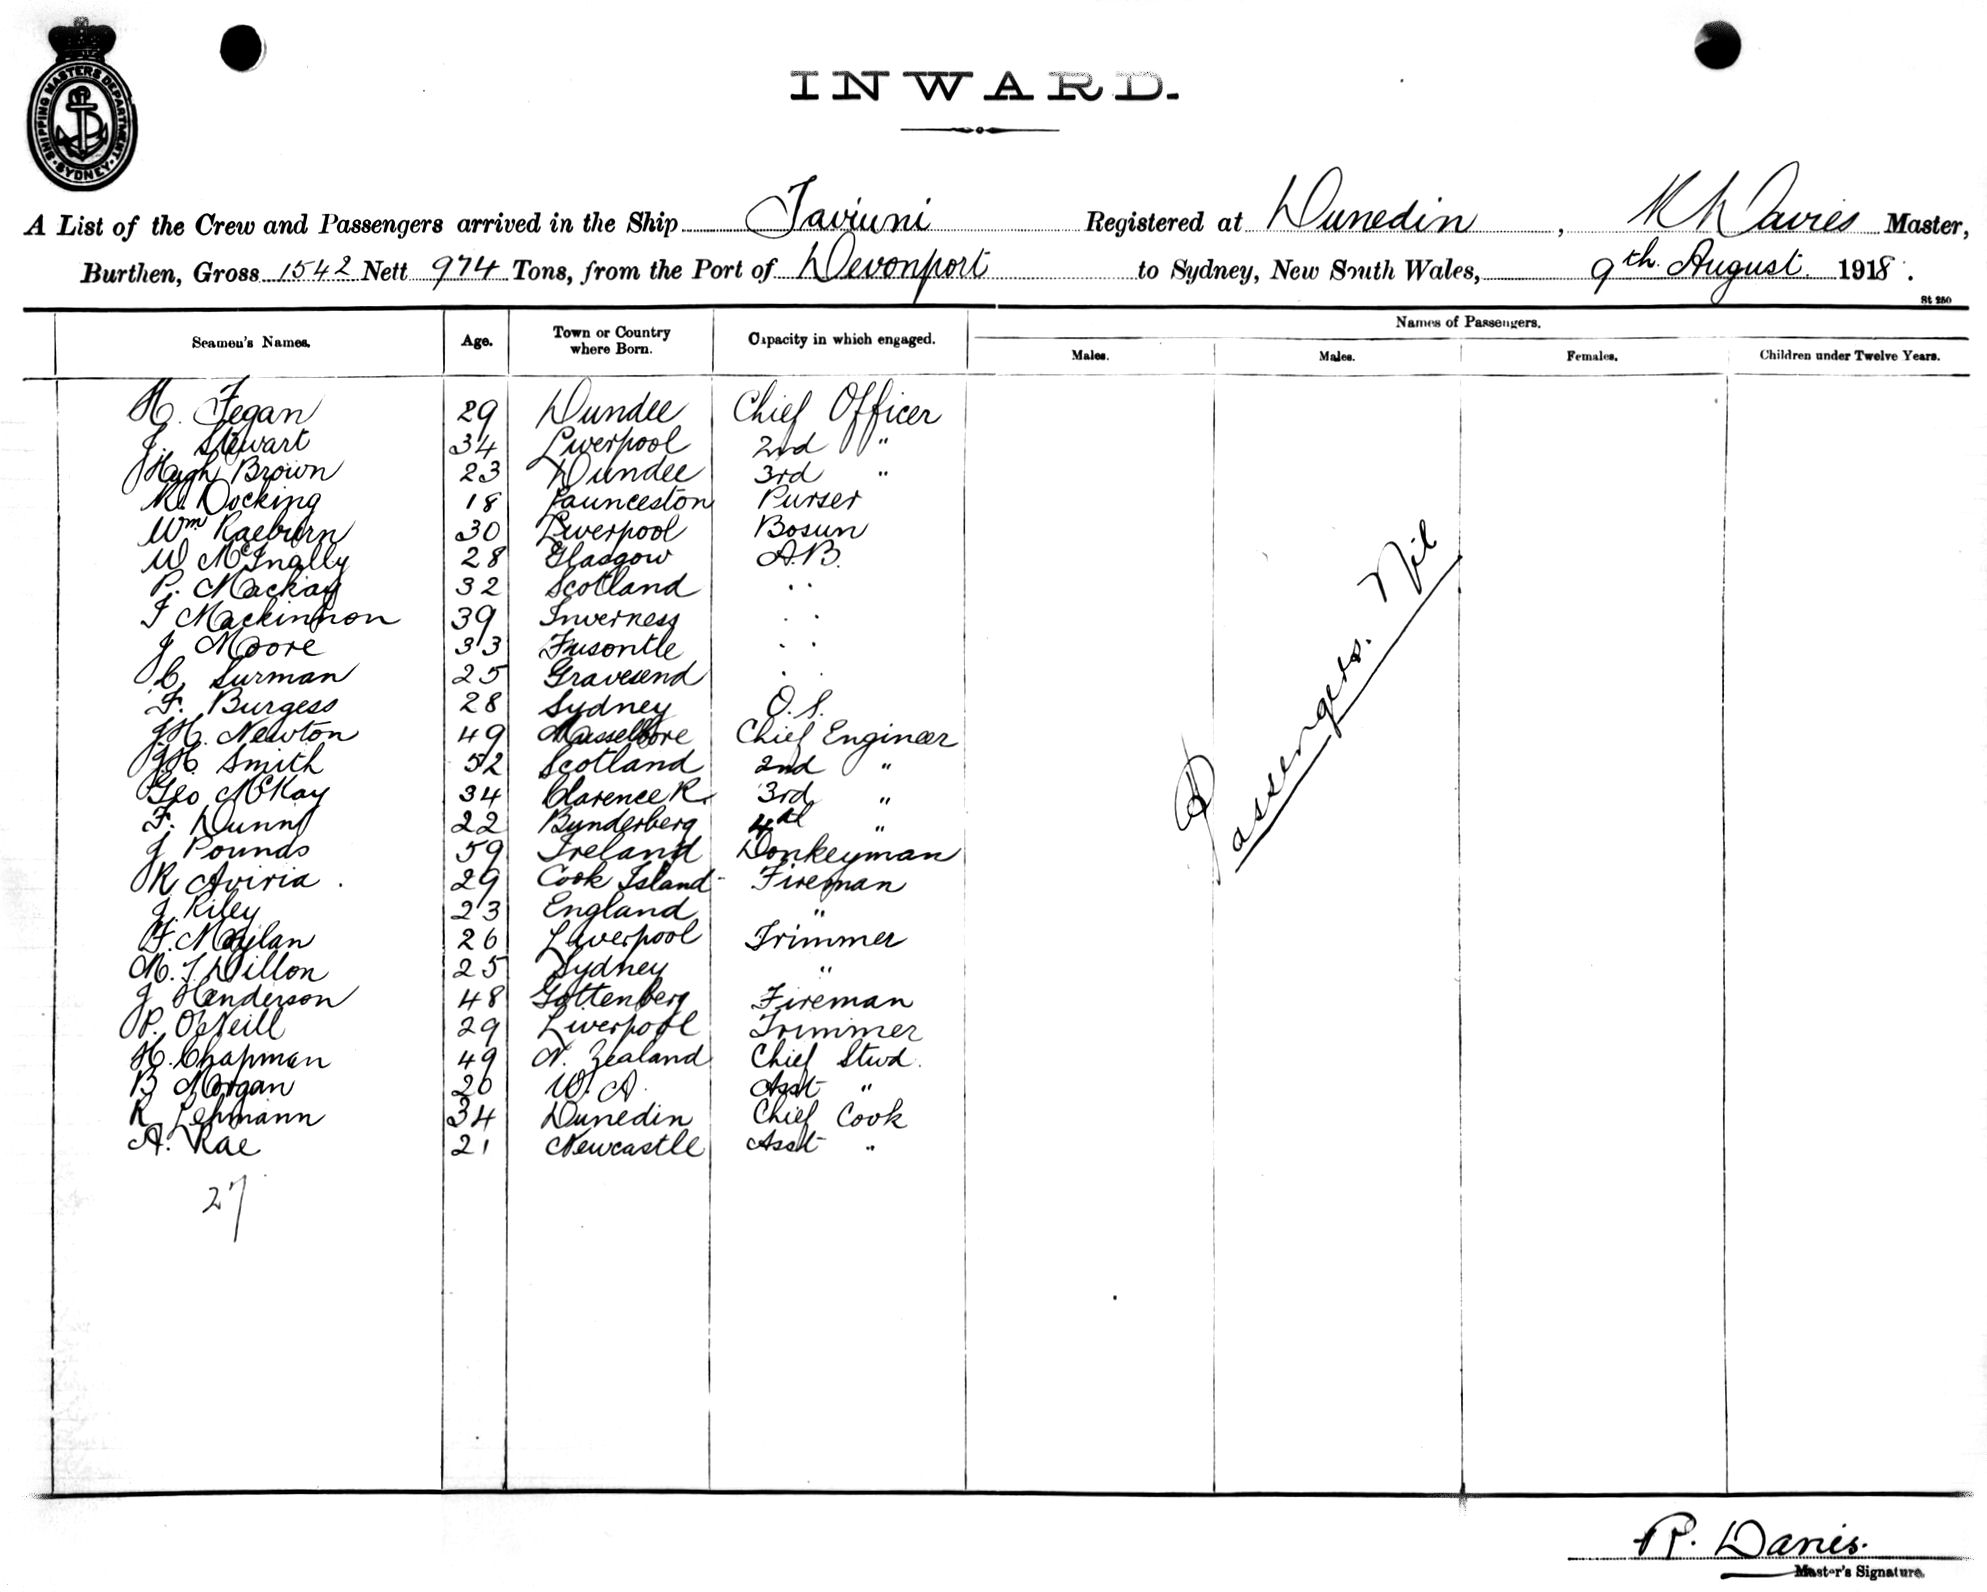 SHIPPING MASTERS DEPARTMENT
SYDNEY
INWARD.
A List of the Crew and Passengers arrived in the Ship Taviuni Registered at Dunedin, Davies Master,
Burthen, Gross 1542 Nett 974 Tons, from the Port of Devonport to Sydney, New South Wales, 9th August 1918.
St 250
Seamen's Names. Age. Town or Country where Born. Capacity in which engaged. Names of Passengers.
Males. Males. Females. Children under Twelve Years.
H. Fegan 29 Dundee Chief Officer
J. Stewart 34 Liverpool 2nd "
Hugh Brown 23 Dundee 3rd "
Docking 18 Launceston Purser
Wm Raeburn 30 Liverpool Bosun
W McInally 28 Glasgow A.B.
P. Mackay 32 Scotland
Mackinnon 39 Inverness
J Moore 33
C. Surman 25 Gravesend
F. Burgess 28 Sydney O.S.
J.H. Newton 49 Chief Engineer
J.H. Smith 52 Scotland 2nd "
Geo McKay 34 Clarence R. 3rd "
F. Dunn 22 Bunderberg 4th "
J Pounds 59 Ireland Donkeyman
R Aviria . 29 Cook Island Fireman
J Riley 23 England "
F. Moylan 26 Liverpool Trimmer
M. J Dillon 25 Sydney "
J Henderson 48 Gottenberg Fireman
P. O'Neill 29 Liverpool Trimmer
H. Chapman 49 N. Zealand Chief Stwd.
B Morgan 20 W.A. Asst "
R Lehmann 34 Dunedin Chief Cook
A. Rae 21 Newcastle Asst "
27
Passengers. Nil
R. Davies.
Master's Signature.